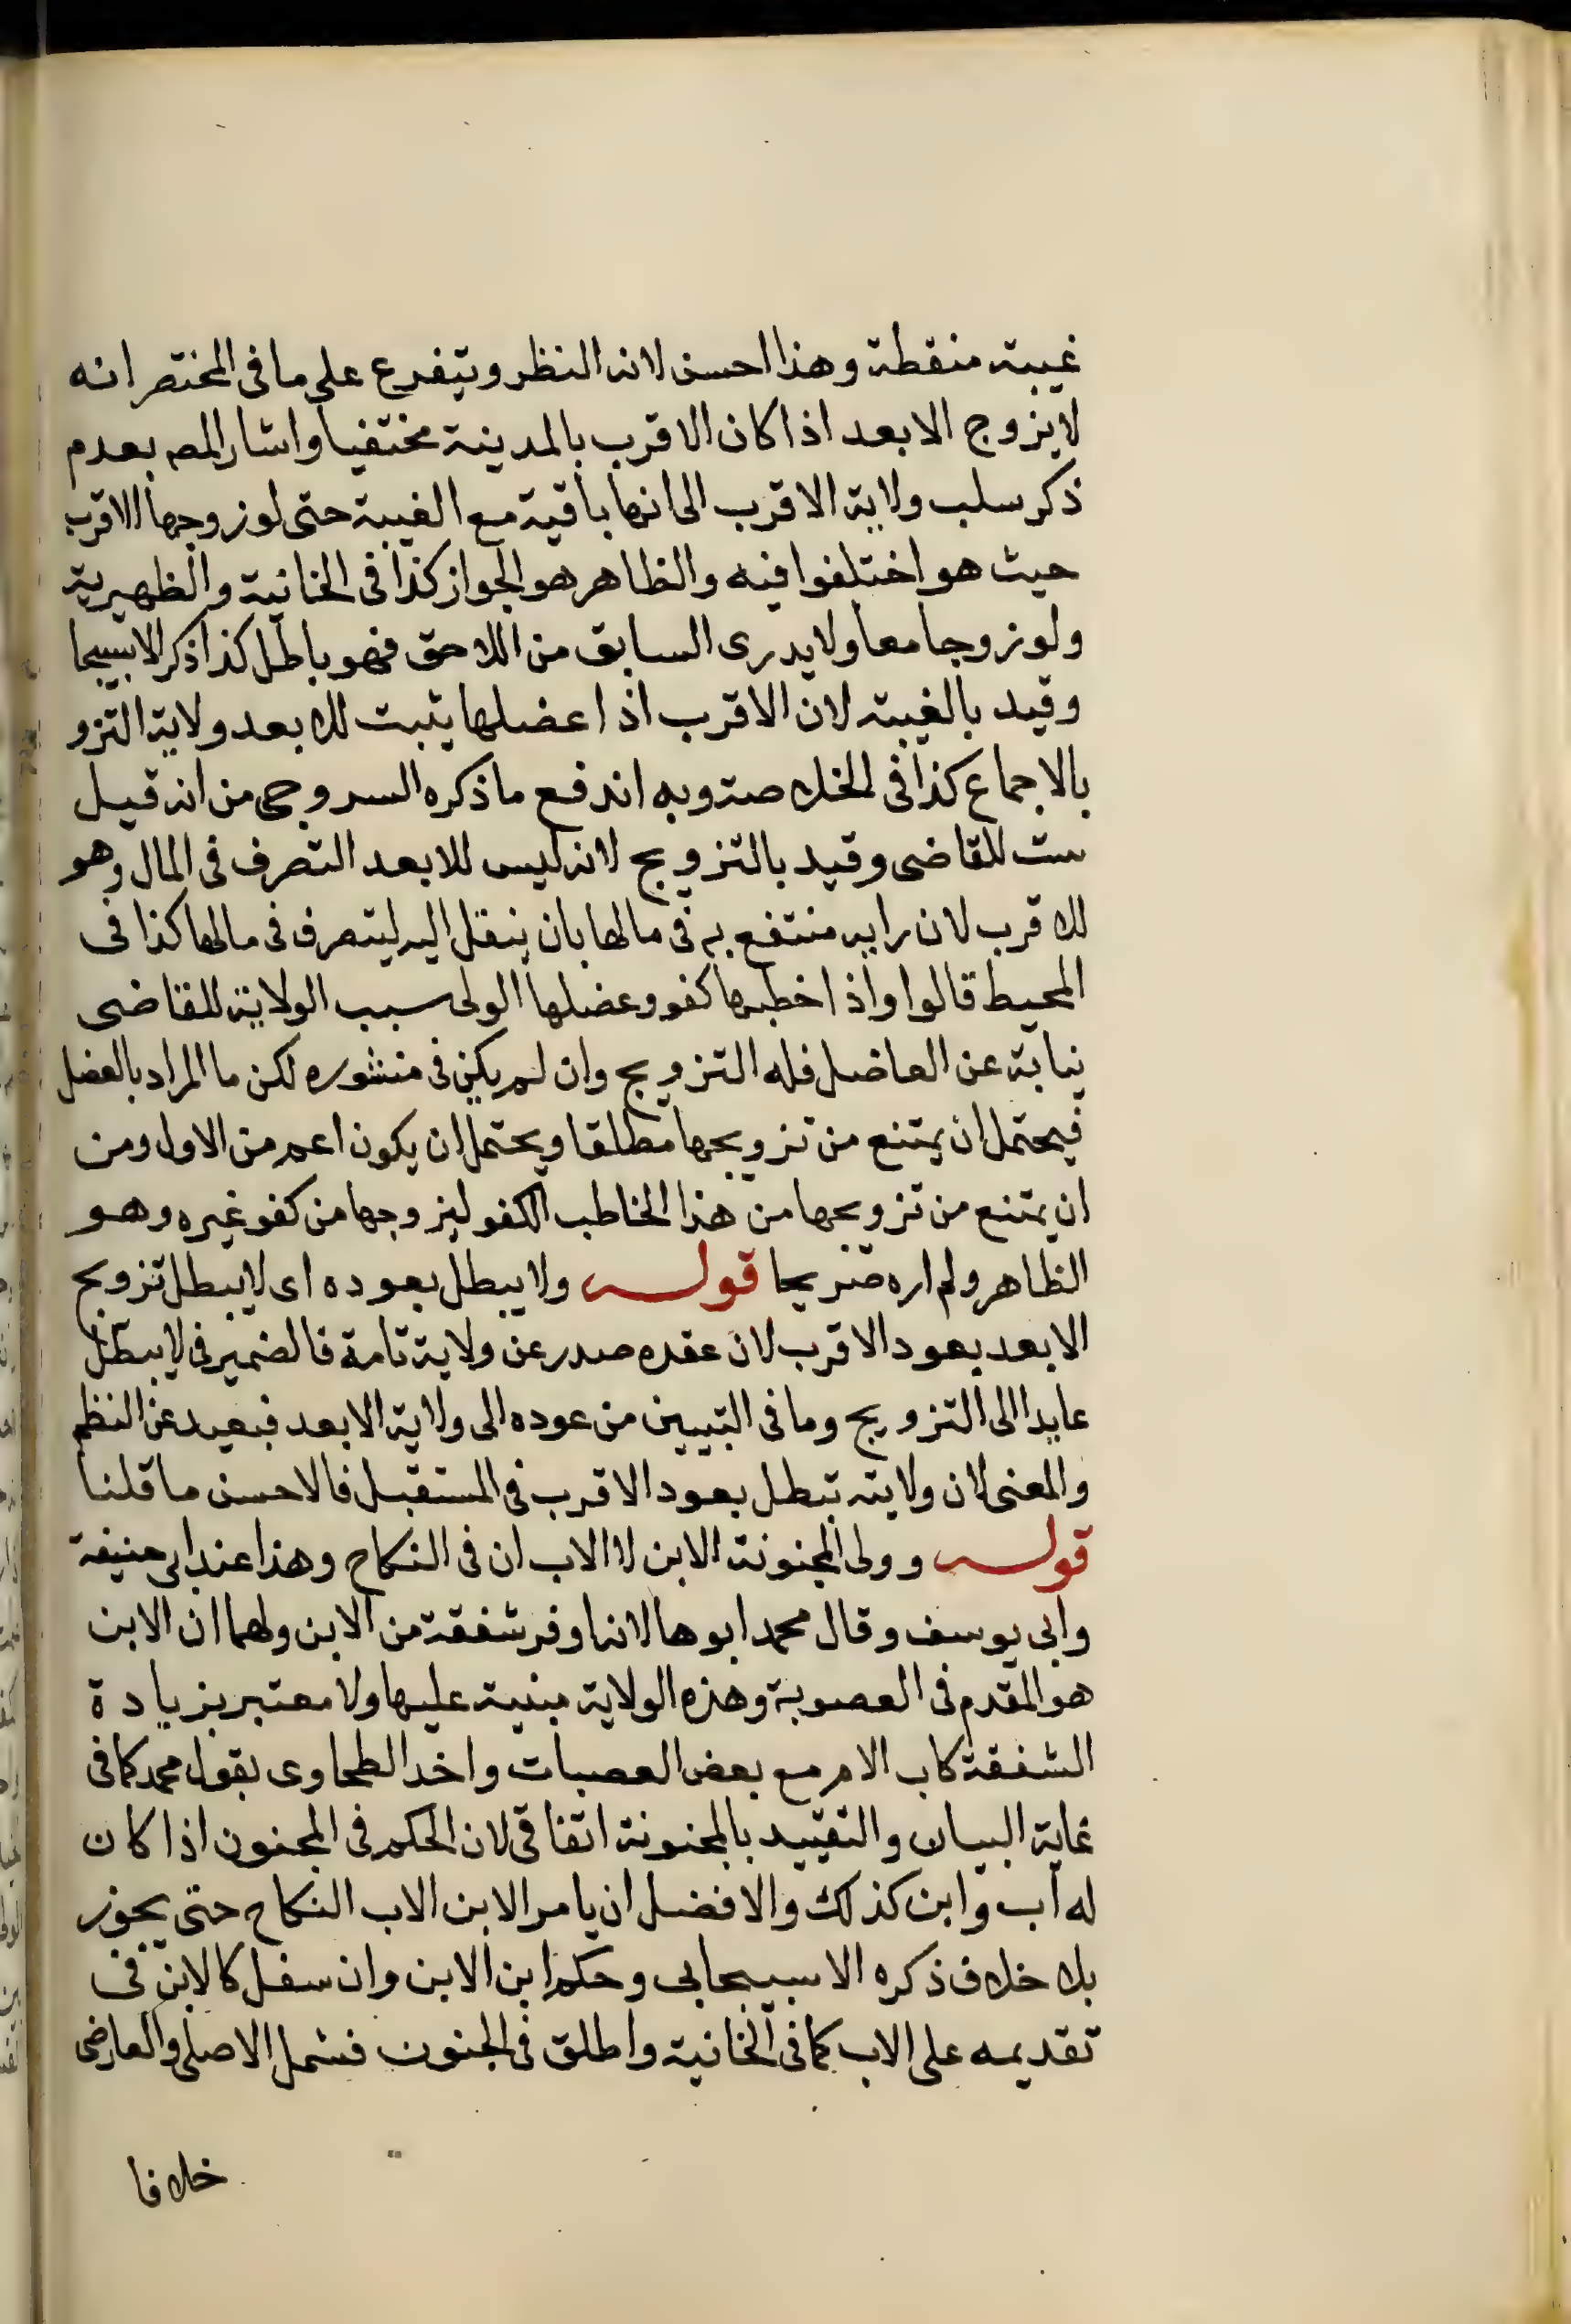 غيبته منقطة وهذا احسن لانه النظر ويتفرع على ما فى المختصر انه
لا يزوج الابعد اذا كان الاقرب بالمدينة مختفيا واشار المصـ بعدم
ذكر سلب ولاية الاقرب الى انها باقية مع الغيبة حتى لو زوجها الاقرب
حيث هو اختلفوا فيه والظاهر هو الجواز كذا فى الخانية والظهيرية
ولو زوجا معا ولا يدرى السابق من اللاحق فهو باطل كذا ذكر الاسبيجا
وقيد بالغيبة لان الاقرب اذا عضلها يثبت للابعد ولاية التزو
بالاجماع كذا فى الخلاصة وبه اندفع ما ذكره السروجى من انه قيل
ست للقاضى وقيد بالتزويج لانه ليس للابعد التصرف فى المال وهو
للاقرب لان رايه منتفع به فى مالها بان ينقل اليه ليتصرف فى مالها كذا فى
المحيط قالوا واذا خطبها كفو وعضلها الولى سبب الولاية للقاضى
نيابة عن العاضل فله التزويج وان لم يكن فى منشوره لكن ما المراد بالعضل
فيحتمل ان يمتنع من تزويجها مطلقا ويحتمل ان يكون اعم من الاول ومن
ان يمتنع من تزويجها من هذا الخاطب الكفو ليزوجها من كفو غيره وهو
الظاهر ولم اره صريحا قوله ولا يبطل بعوده اى لا يبطل تزويج
الابعد بعود الاقرب لان عقده صدر عن ولاية تامة فالضمير فى لا يبطل
عايدا الى التزويج وما فى التبيين من عوده الى ولاية الابعد فبعيد عن النظم
والمعنى لان ولايته تبطل بعود الاقرب فى المستقبل فالاحسن ما قلنا
قوله وولى المجنونة الابن لا الاب ان فى النكاح وهذا عند ابى حنيفة
وابى يوسف وقال محمد ابوها لانه اوفر شفقة من الابن ولهما ان الابن
هو المقدم فى العصوبة وهذه الولاية مبنية عليها ولا معتبر بزيادة
الشفقة كاب الام مع بعض العصبات واخذ الطحاوى بقول محمد كما فى
غاية البيان والتقييد بالمجنونة اتفاقى لان الحكم فى المجنون اذا كان
له اب وابن كذلك والافضل ان يامر الابن الاب النكاح حتى يجوز
بلا خلاف ذكره الاسبيجابى وحكم ابن الابن وان سفل كالابن فى
تقديمه على الاب كما فى الخانية واطلق فى الجنون فشمل الاصلى والعارضى
خلافا